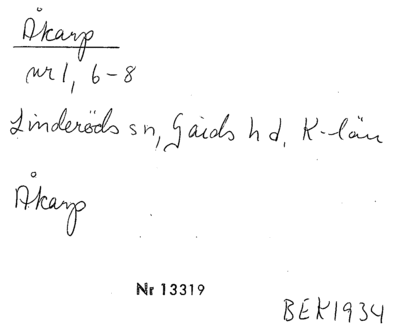 Åkarp
nr 1, 6-8
Linderöds sn, Gärds hd, K-län
Åkarp
Nr 13319
BEK1934